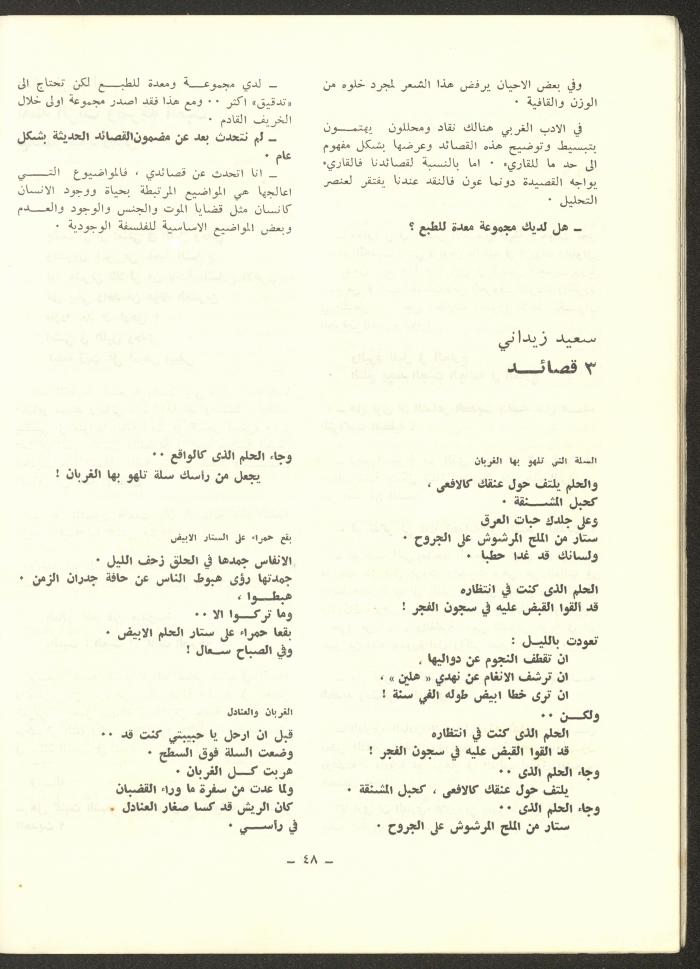 وفي بعض الاحيان يرفض هذا الشعر لمجرد خلوه من
الوزن والقافية ·
في الادب الغربي هنالك نقاد ومحللون يهتمــــون
بتبسيط وتوضيح هذه القصائد وعرضها بشكل مفهوم
الى حد ما للقاريء · اما بالنسبة لقصائدنا فالقاريء
يواجه القصيدة دونما عون فالنقد عندنا يفتقر لعنصر
التحليل ·
ــ هل لديك مجموعة معدة للطبع ؟
ــ لدي مجموعــــة ومعدة للطبــــع لكن تحتاج الى
«تدقيق» اكثر ·· ومع هذا فقد اصدر مجموعة اولى خلال
الخريف القادم ·
ــ لم نتحدث بعد عن مضمون القصائد الحديثة بشكل
عام ·
ــ انا اتحدث عن قصائدي ، فالمواضيوع التـــــي
اعالجها هي المواضيع المرتبطة بحياة ووجود الانسان
كانسان مثل قضايا الموت والجنس والوجود والعــــدم
وبعض المواضيع الاساسية للفلسفة الوجودية ·
سعيد زيداني
٣ قصائـــــد
السلة التي تلهو بها الغربان
والحلم يلتف حول عنقك كالافعى ،
كحبل المشـــنقة ·
وعلى جلدك حبات العرق
ستار من الملح المرشوش على الجروح ·
ولسانك قد غدا حطبا ·
الحلم الذى كنت في انتظاره
قد القوا القبض عليه في سجون الفجر !
تعودت بالليـــل :
ان تقطف النجوم عن دواليها ،
ان ترشف الانغام عن نهدي « هلين » ،
ان ترى خطا ابيض طوله الفي سنة !
ولكـــن ··
الحلم الذى كنت في انتظاره
قد القوا القبض عليه في سجون الفجر !
وجاء الحلم الذى ··
يلتف حول عنقك كالافعى ، كحبل المشنقة ·
وجاء الحلم الذى ··
ستار من الملح المرشوش على الجروح ·
وجاء الحلم الذى كالواقع ··
يجعل من رأسك سلة تلهو بها الغربان !
بقع حمراء على الستار الابيض
الانفاس جمدها في الحلق زحف الليل ·
جمدتها رؤى هبوط الناس عن حافة جدران الزمن ·
هبطـــوا ،
وما تركــــوا الا ··
بقعا حمراء على ستار الحلم الابيض ·
وفي الصباح ســـعال !
الغربان والعنادل
قبل ان ارحل يا حبيبتي كنت قد ··
وضعت السلة فوق السطح ·
هربت كــــل الغربان ·
ولما عدت من سفرة ما وراء القضبان
كان الريش قد كسا صغار العنادل ·
في رأســــي ·
ــ ٤٨ ــ